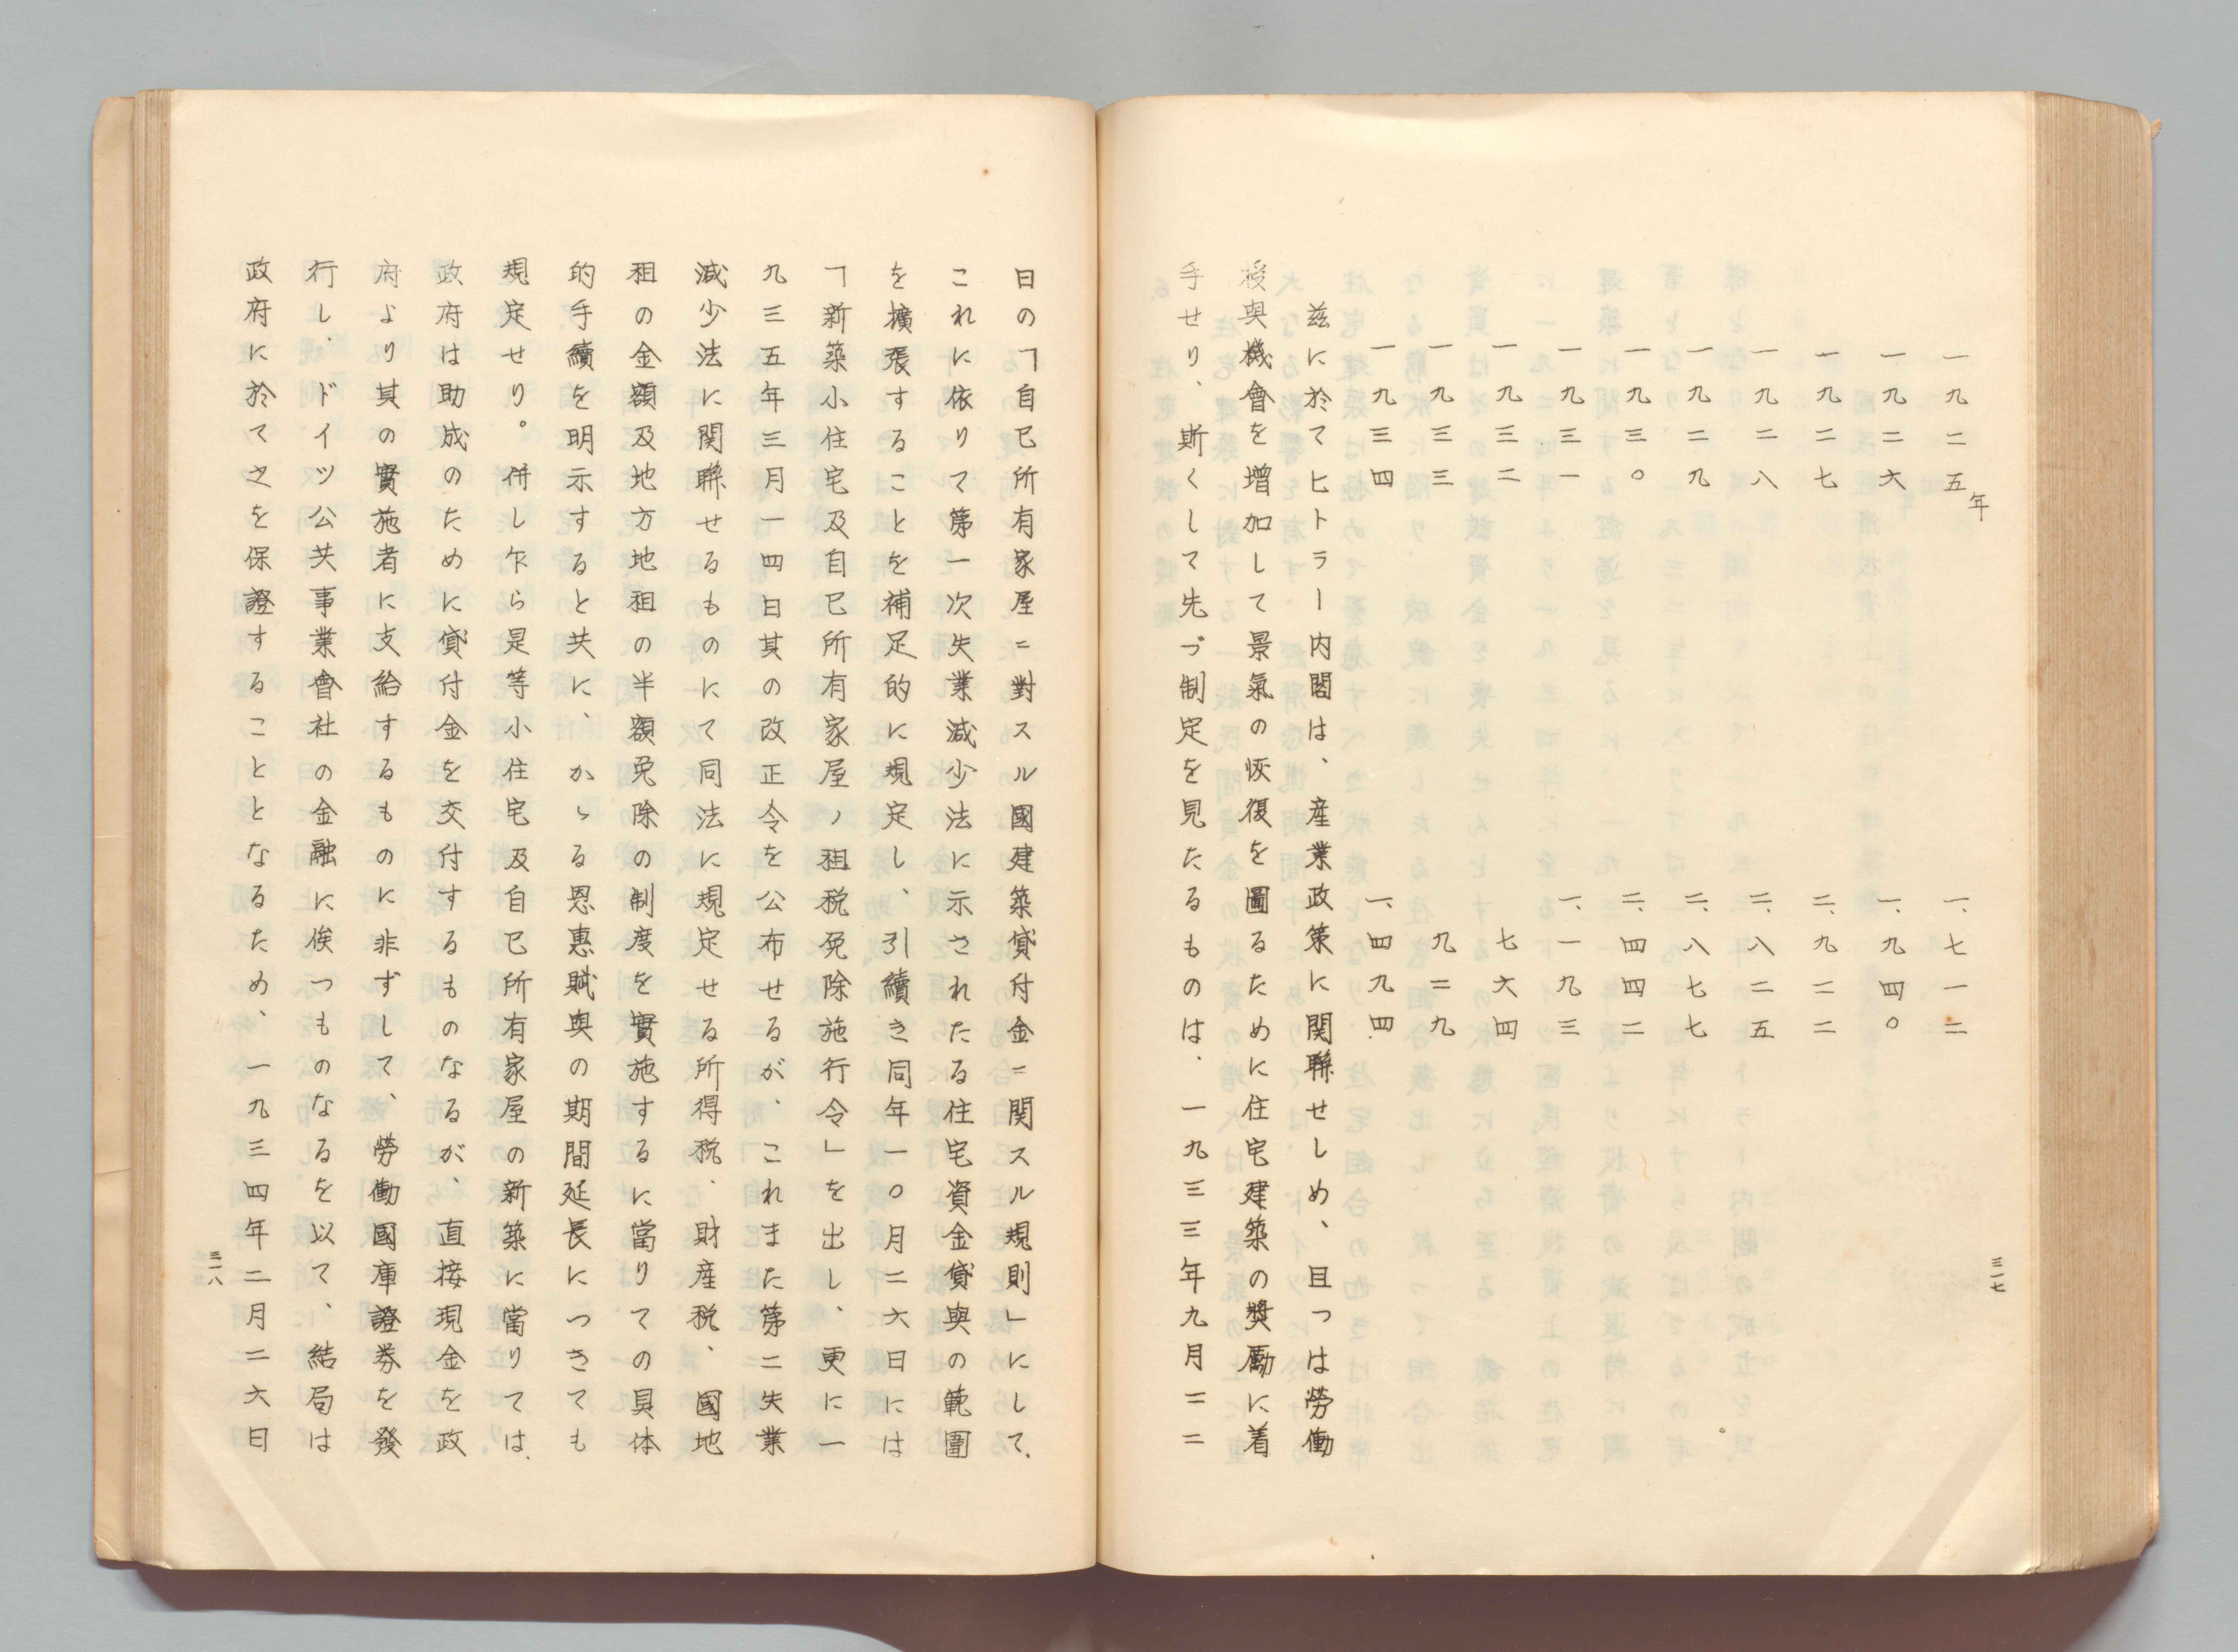 一九二五年　一、七一二
一九二六　一、九四〇
一九二七　二、九二二
一九二八　二、八二五
一九二九　二、八七七
一九三〇　二、四四二
一九三一　一、一九三
一九三二　七六四
一九三三　九二九
一九三四　一、四九四
茲に於てヒトラー内閣は、産業政策に関聯せしめ、且つは勞働
授與機會を増加して景氣の恢復を圖るために住宅建築の奬勵に着
手せり、斯くして先づ制定を見たるものは、一九三三年九月二二
三一七
日の「自已所有家屋ニ對スル國建築貸付金ニ関スル規則」にして、
これに依りて第一次失業減少法に示されたる住宅資金貸與の範圍
を擴張することを補足的に規定し、引續き同年一〇月二六日には
「新築小住宅及自已所有家屋ノ租税免除施行令」を出し、更に一
九三五年三月一四日其の改正令を公布せるが、これまた第二失業
減少法に関聯せるものにて同法に規定せる所得税、財産税、國地
租の金額及地方地租の半額免除の制度を實施するに當りての具体
的手續を明示すると共に、かゝる恩惠賦與の期間延長につきても
規定せり。併し乍ら是等小住宅及自已所有家屋の新築に當りては、
政府は助成のために貸付金を交付するものなるが、直接現金を政
府より其の實施者に支給するものに非ずして、勞働國庫證券を發
行し、ドイツ公共事業會社の金融に俟つものなるを以て、結局は
政府に於て之を保證することとなるため、一九三四年二月二六日
三一八